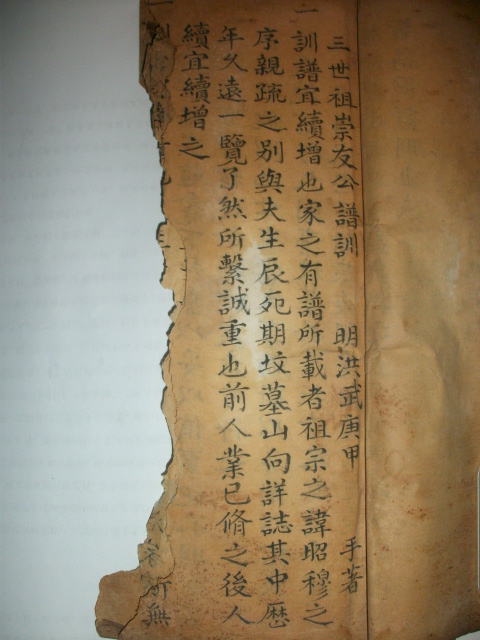 三世祖崇友公譜訓 明洪武庚甲 手著
一訓譜宜續增也家之有譜所載者祖宗之諱昭穆之
序親疏之别與夫生辰死期坟墓山向詳誌其中歷
年久遠一覽了然所繫誠重也前人業已脩之後人
續宜續增之
一訓 所無